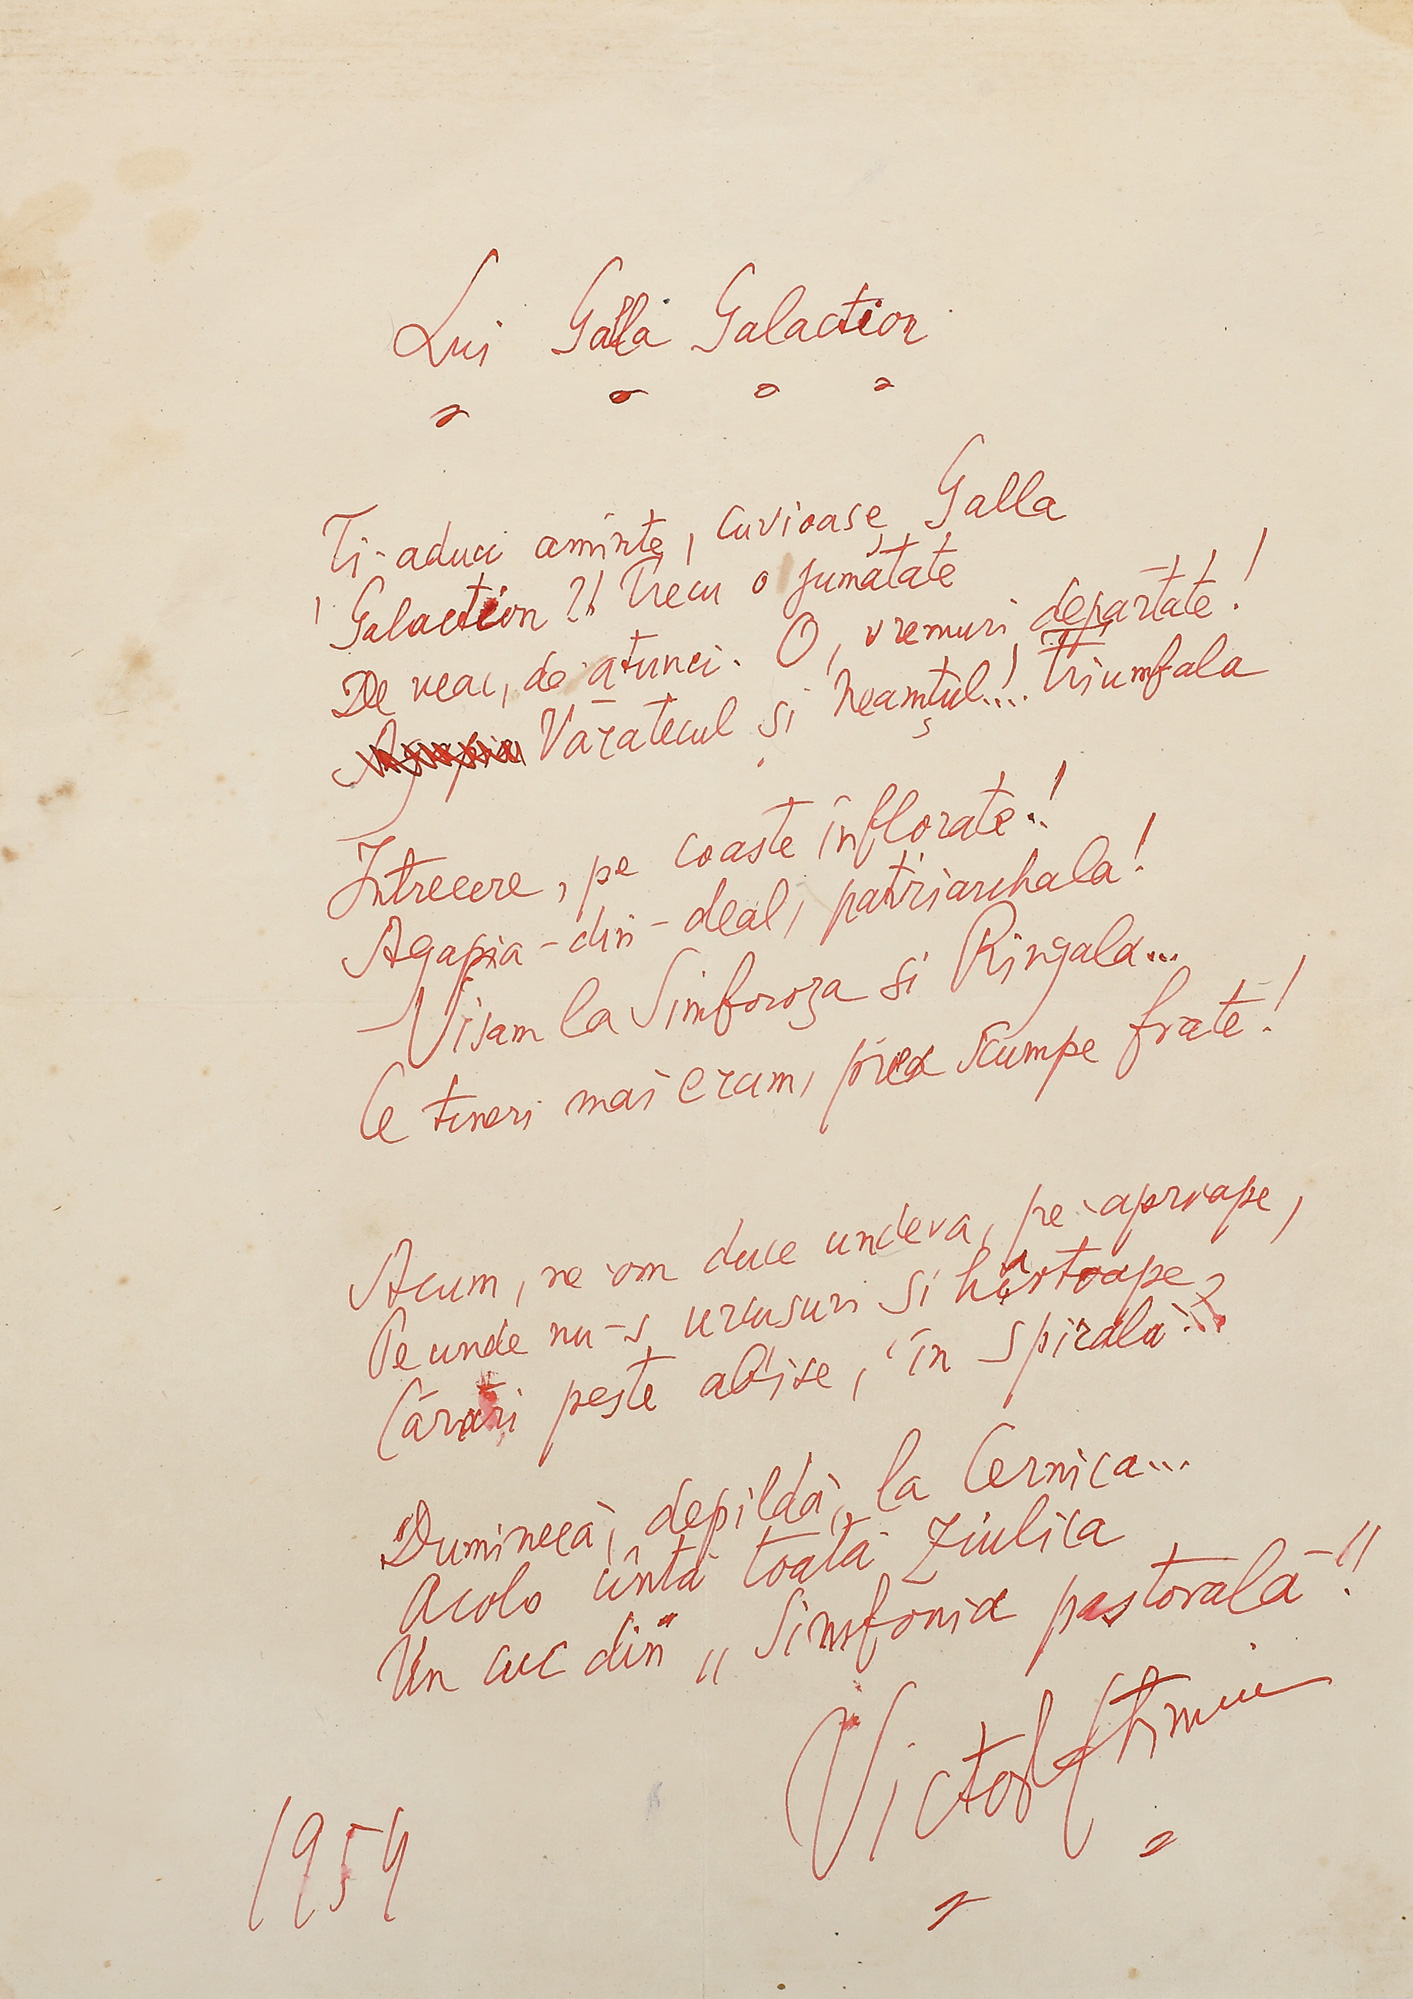 Lui Galla Galaction
Ti-aduci aminte, cuvioase Galla
Galaction?! Trecu o jumătate
De veac, de atunci. O, vremuri departate!
Văratecul și Neamțul!... Triumfala
Intrecere, pe coaste înflorate!
Agapia-din-deal, patriarhala!
– Visam la Simforoza si Ringala...
Ce tineri mai eram, prea scumpe frate!
Acum, ne-om duce undeva, pe-aproape,
Pe unde nu-s urcusuri si hârtoape,
Cărări peste abise, în spirală.
Duminecă, depildă, la Cernica...
Acolo cântă toată ziulica
Un cuc din „Simfonia pastorală”!
Victor Eftimiu
1954